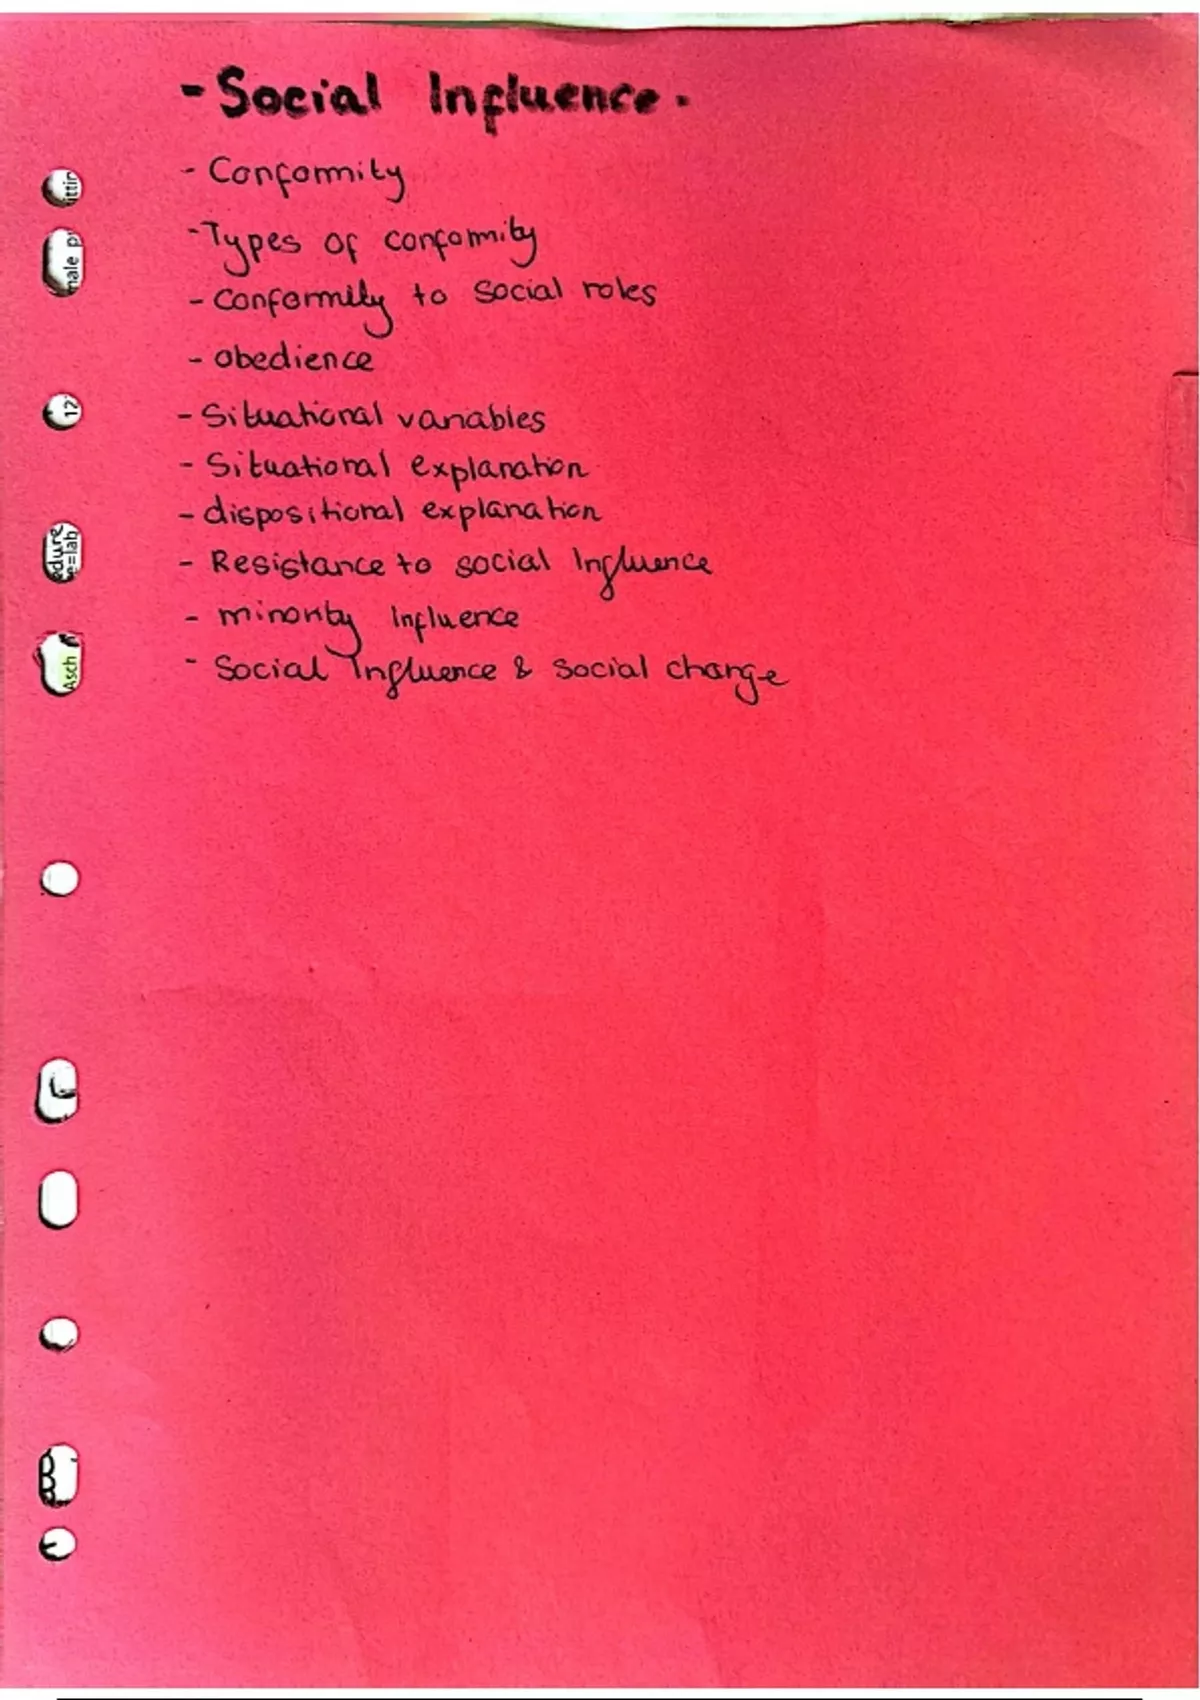 - Social Influence.
- Conformity
- Types of conformity
- conformity to social roles
- obedience
- Situational variables
- Situational explanation
- dispositional explanation
- Resistance to social Influence
- minority Influence
- Social Influence & social change
ittin
male p
12
edure
e=lab
Asch